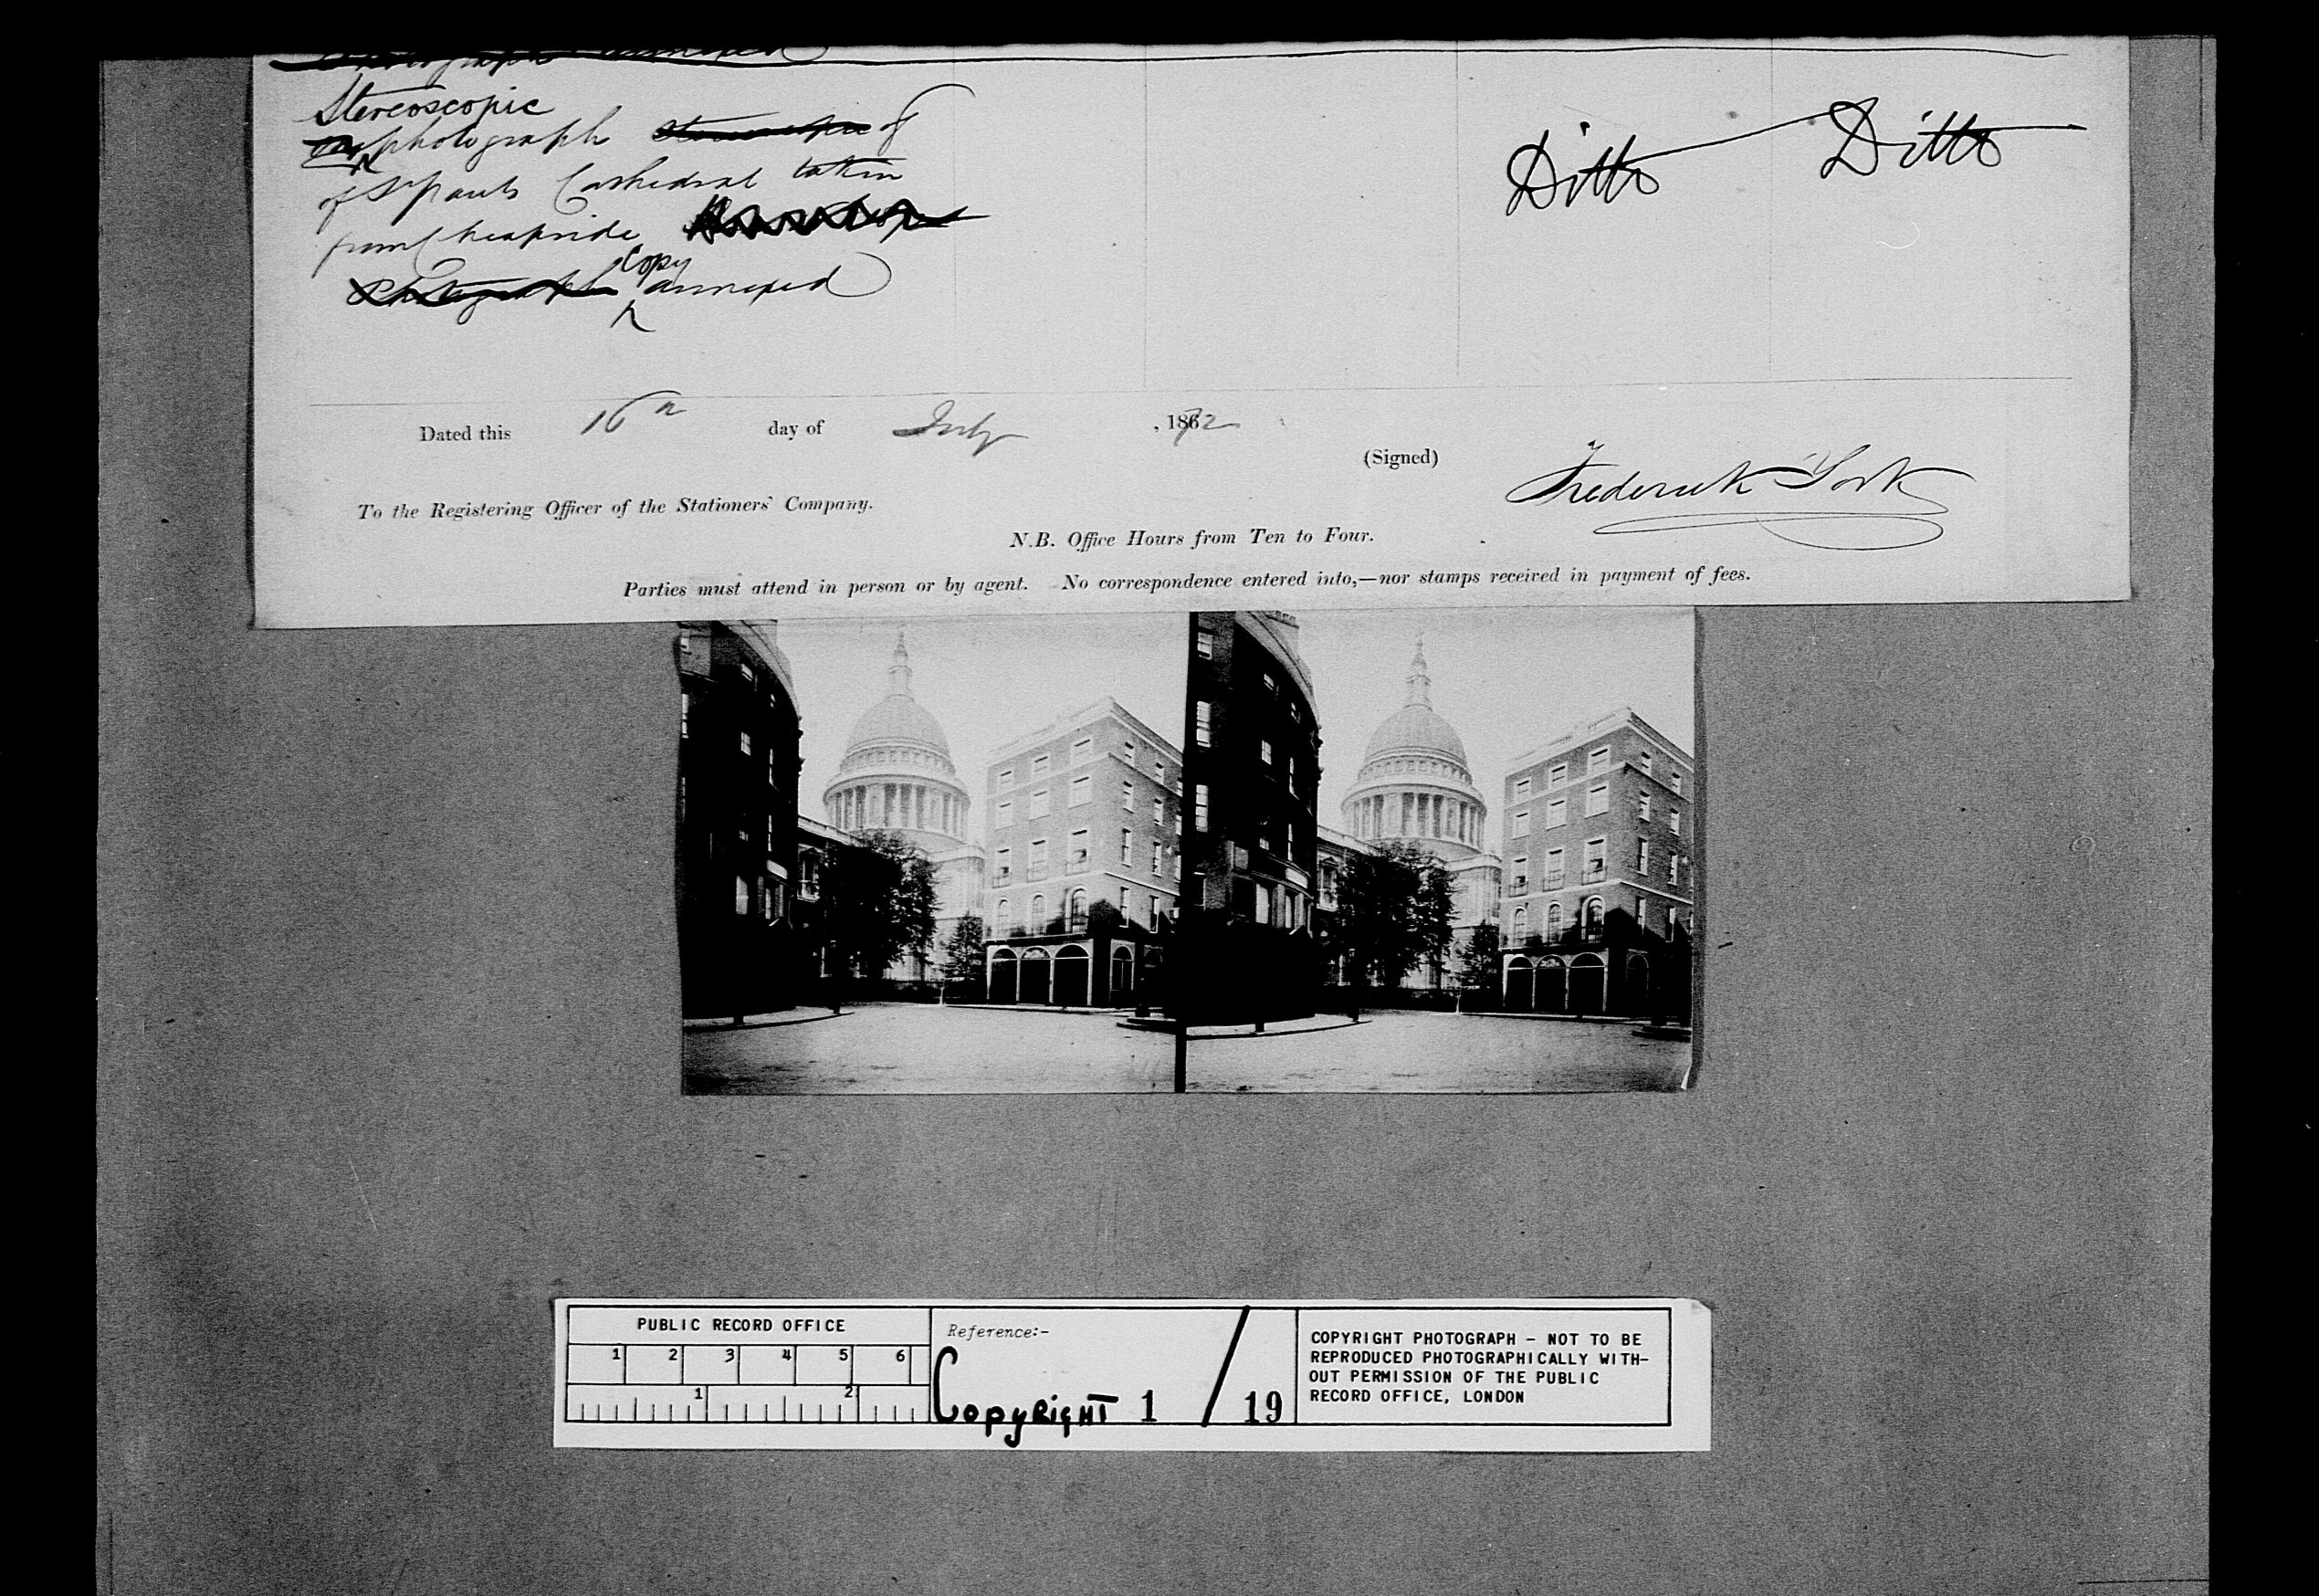 Photograph annexed
Stereoscopic
photograph of
of St Pauls Cathedral taken
from Cheapside
Photograph Copy annexed
Ditto Ditto
Dated this 16th day of July , 1872
(Signed) Frederick York
To the Registering Officer of the Stationers' Company.
N.B. Office Hours from Ten to Four.
Parties must attend in person or by agent. No correspondence entered into,—nor stamps received in payment of fees.
PUBLIC RECORD OFFICE
1 2 3 4 5 6
1 2
Reference:-
Copyright 1 / 19
COPYRIGHT PHOTOGRAPH - NOT TO BE
REPRODUCED PHOTOGRAPHICALLY WITH-
OUT PERMISSION OF THE PUBLIC
RECORD OFFICE, LONDON